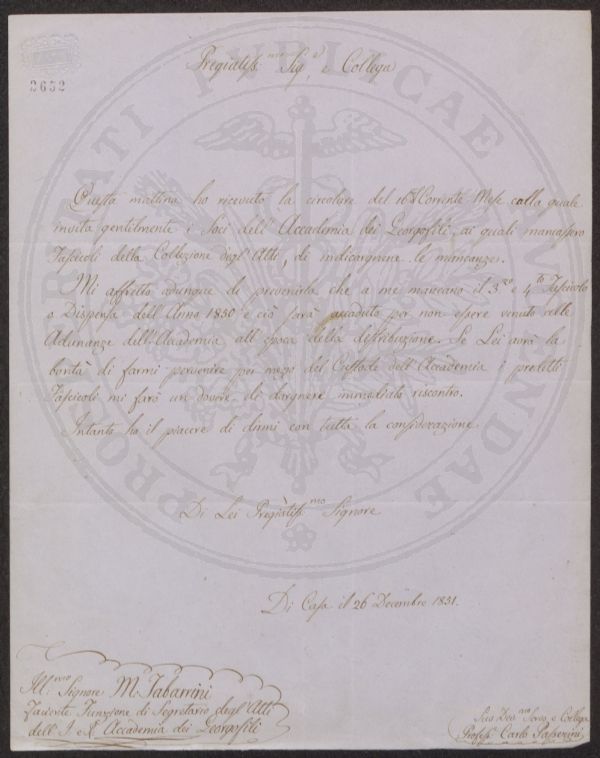 2652
Pregiatiss.mo Sig.e e Collega
Questa mattina ho ricevuto la circolare del 16 Corrente Mese colla quale
invita gentilmente i Soci dell'Accademia dei Georgofili, ai quali mancassero
Fascicoli della Collezione degl'Atti, di indicargnene le mancanze.
Mi affretto adunque di prevenirla che a me mancano il 3.zo e 4.to Fascicolo
o Dispensa dell'Anno 1850 e ciò sarà accaduto per non essere venuto alle
Adunanze dell'Accademia all'epoca della distribuzione. Se Lei avrà la
bontà di farmi pervenire per mezzo del Custode dell'Accademia i predetti
Fascicoli mi farò un dovere di dargnene immediato riscontro.
Intanto ho il piacere di dirmi con tutta la considerazione
Di Lei Pregiatiss.mo Signore
Di Casa il 26 Decembre 1851.
Ill.mo Signore M. Tabarrini
Facente Funzione di Segretario degl'Atti
dell'I. e R. Accademia dei Georgofili
Suo Dev.mo Servo e Collega
Profess. Carlo Passerini
PROSPERITATI PUBLICAE AUGENDAE